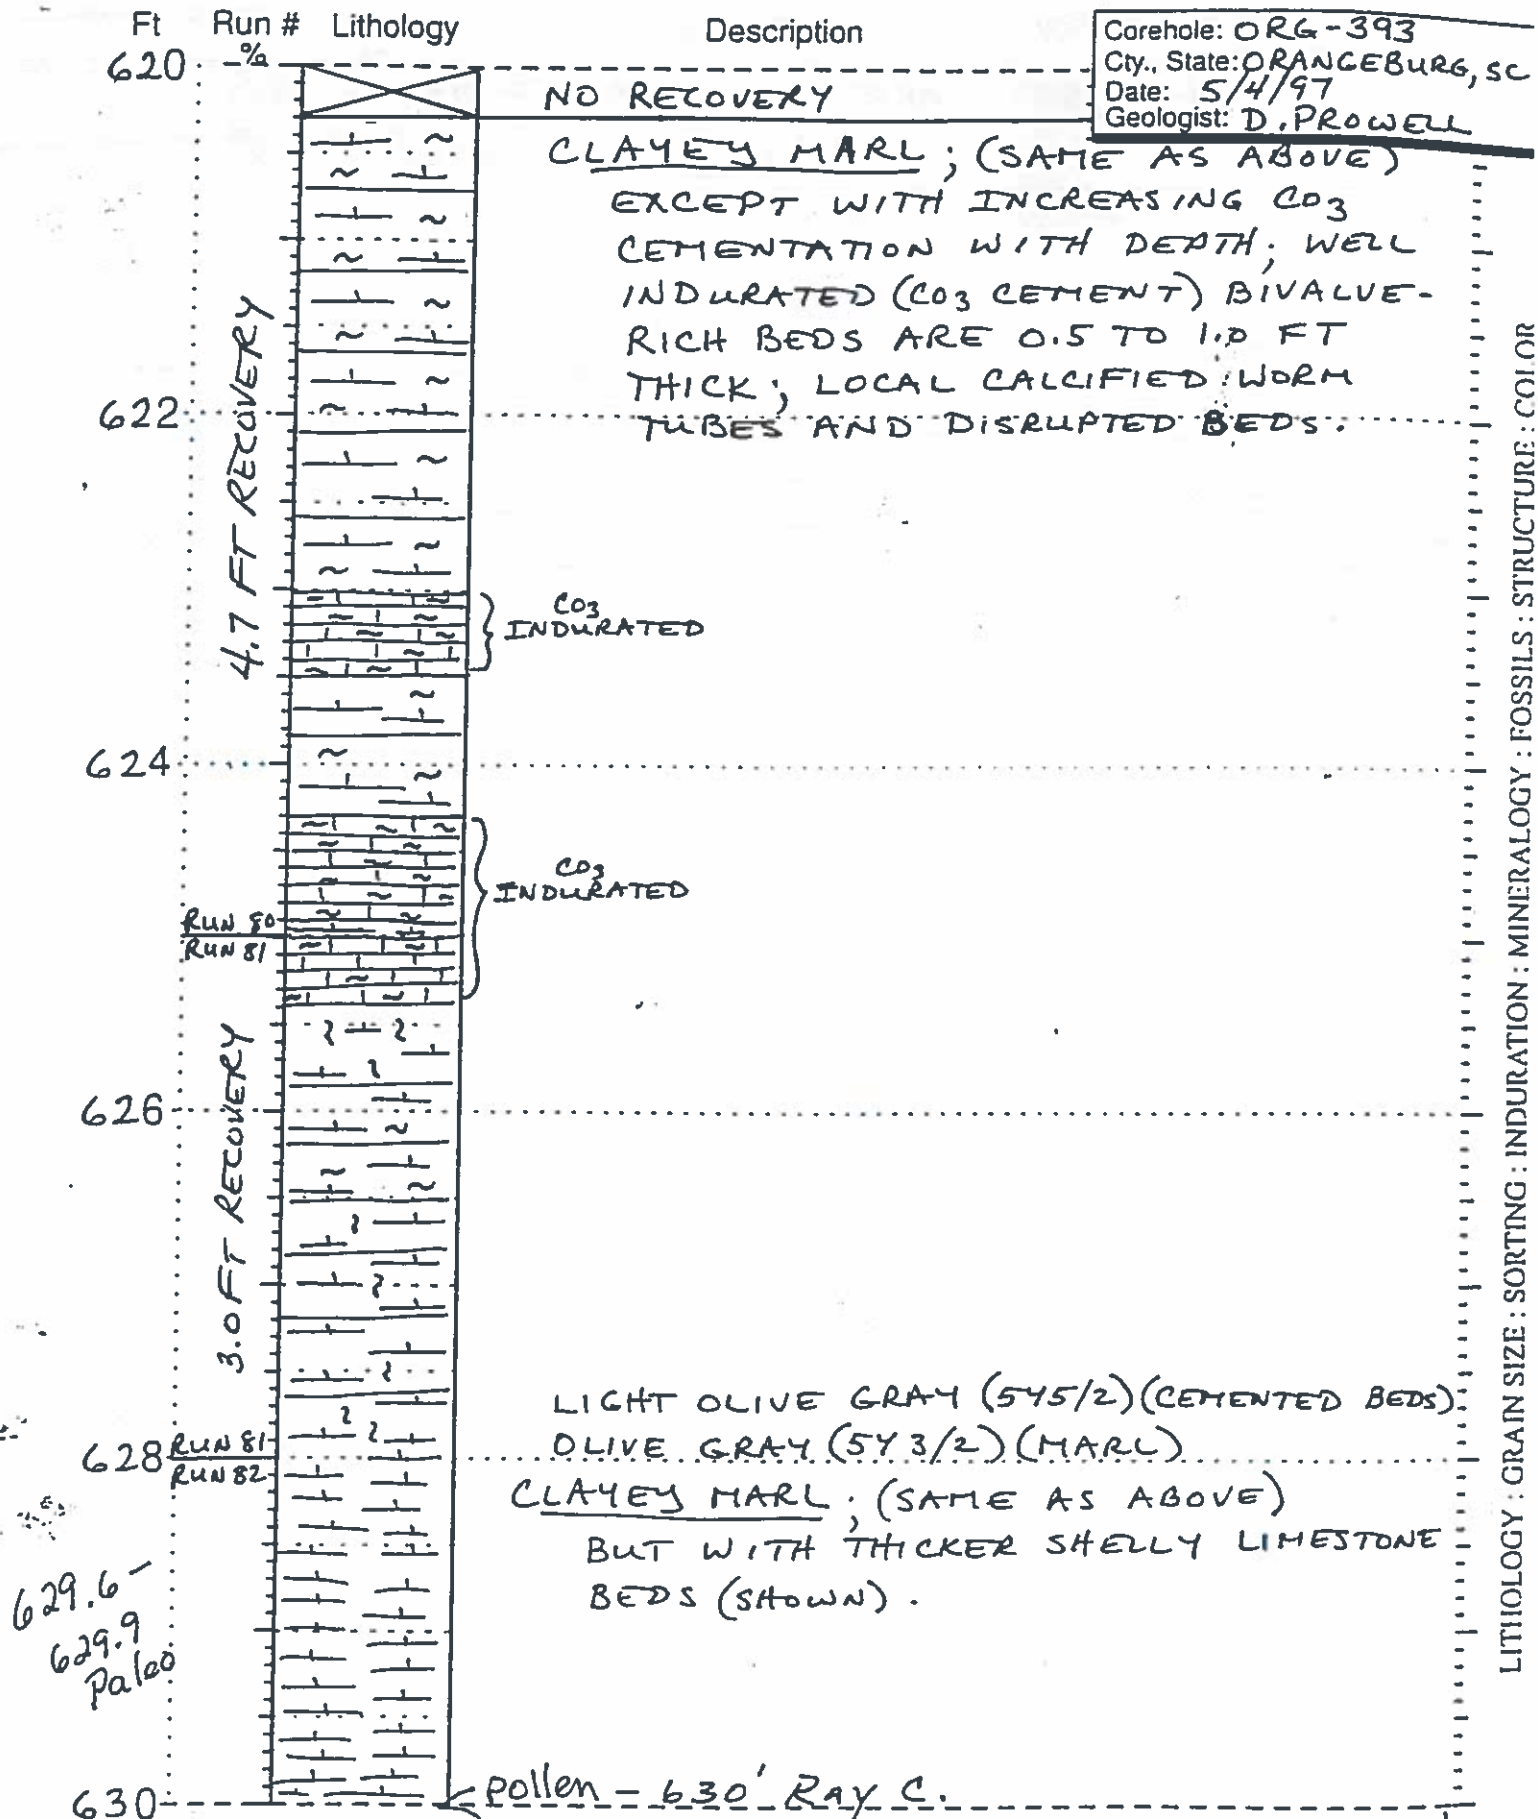 Ft Run # Lithology Description
Corehole: ORG-393
Cty., State: ORANGEBURG, SC
Date: 5/4/97
Geologist: D. PROWELL
620
%
NO RECOVERY
CLAYEY MARL; (SAME AS ABOVE)
EXCEPT WITH INCREASING CO3
CEMENTATION WITH DEPTH; WELL
INDURATED (CO3 CEMENT) BIVALVE-
RICH BEDS ARE 0.5 TO 1.0 FT
THICK; LOCAL CALCIFIED WORM
TUBES AND DISRUPTED BEDS.
622
4.7 FT RECOVERY
CO3
INDURATED
624
CO3
INDURATED
RUN 80
RUN 81
626
3.0 FT RECOVERY
LIGHT OLIVE GRAY (5Y5/2) (CEMENTED BEDS)
OLIVE GRAY (5Y 3/2) (MARL)
RUN 81
628
RUN 82
CLAYEY MARL; (SAME AS ABOVE)
BUT WITH THICKER SHELLY LIMESTONE
BEDS (SHOWN).
629.6 -
629.9
Paleo
630
pollen - 630' RAY C.
LITHOLOGY : GRAIN SIZE : SORTING : INDURATION : MINERALOGY : FOSSILS : STRUCTURE : COLOR